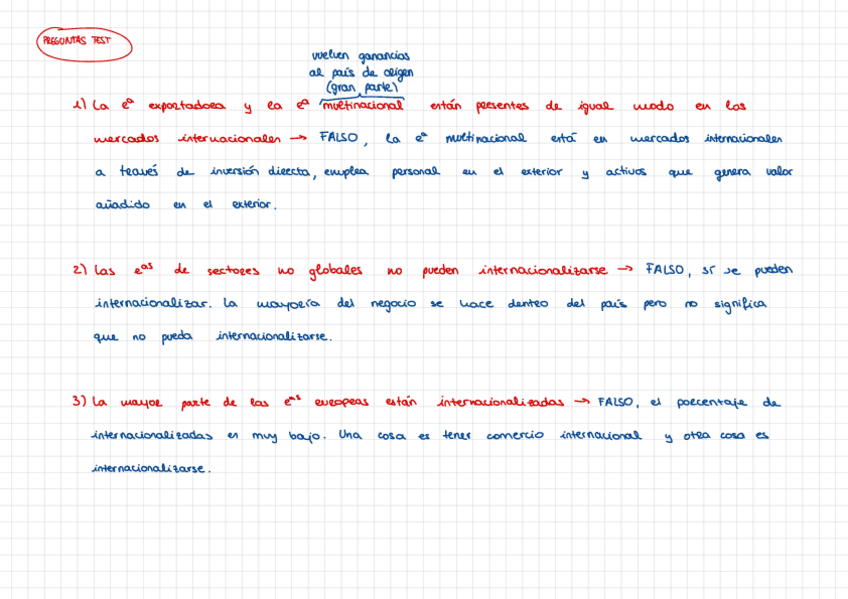 PREGUNTAS TEST
vuelven ganancias
al país de origen
(gran parte)
1) La eª exportadora y la eª multinacional están presentes de igual modo en los
mercados internacionales → FALSO, la eª multinacional está en mercados internacionales
a través de inversión directa, emplea personal en el exterior y activos que genera valor
añadido en el exterior.
2) Las eas de sectores no globales no pueden internacionalizarse → FALSO, sí se pueden
internacionalizar. La mayoría del negocio se hace dentro del país pero no significa
que no pueda internacionalizarse.
3) La mayor parte de las eas europeas están internacionalizadas → FALSO, el porcentaje de
internacionalizadas es muy bajo. Una cosa es tener comercio internacional y otra cosa es
internacionalizarse.